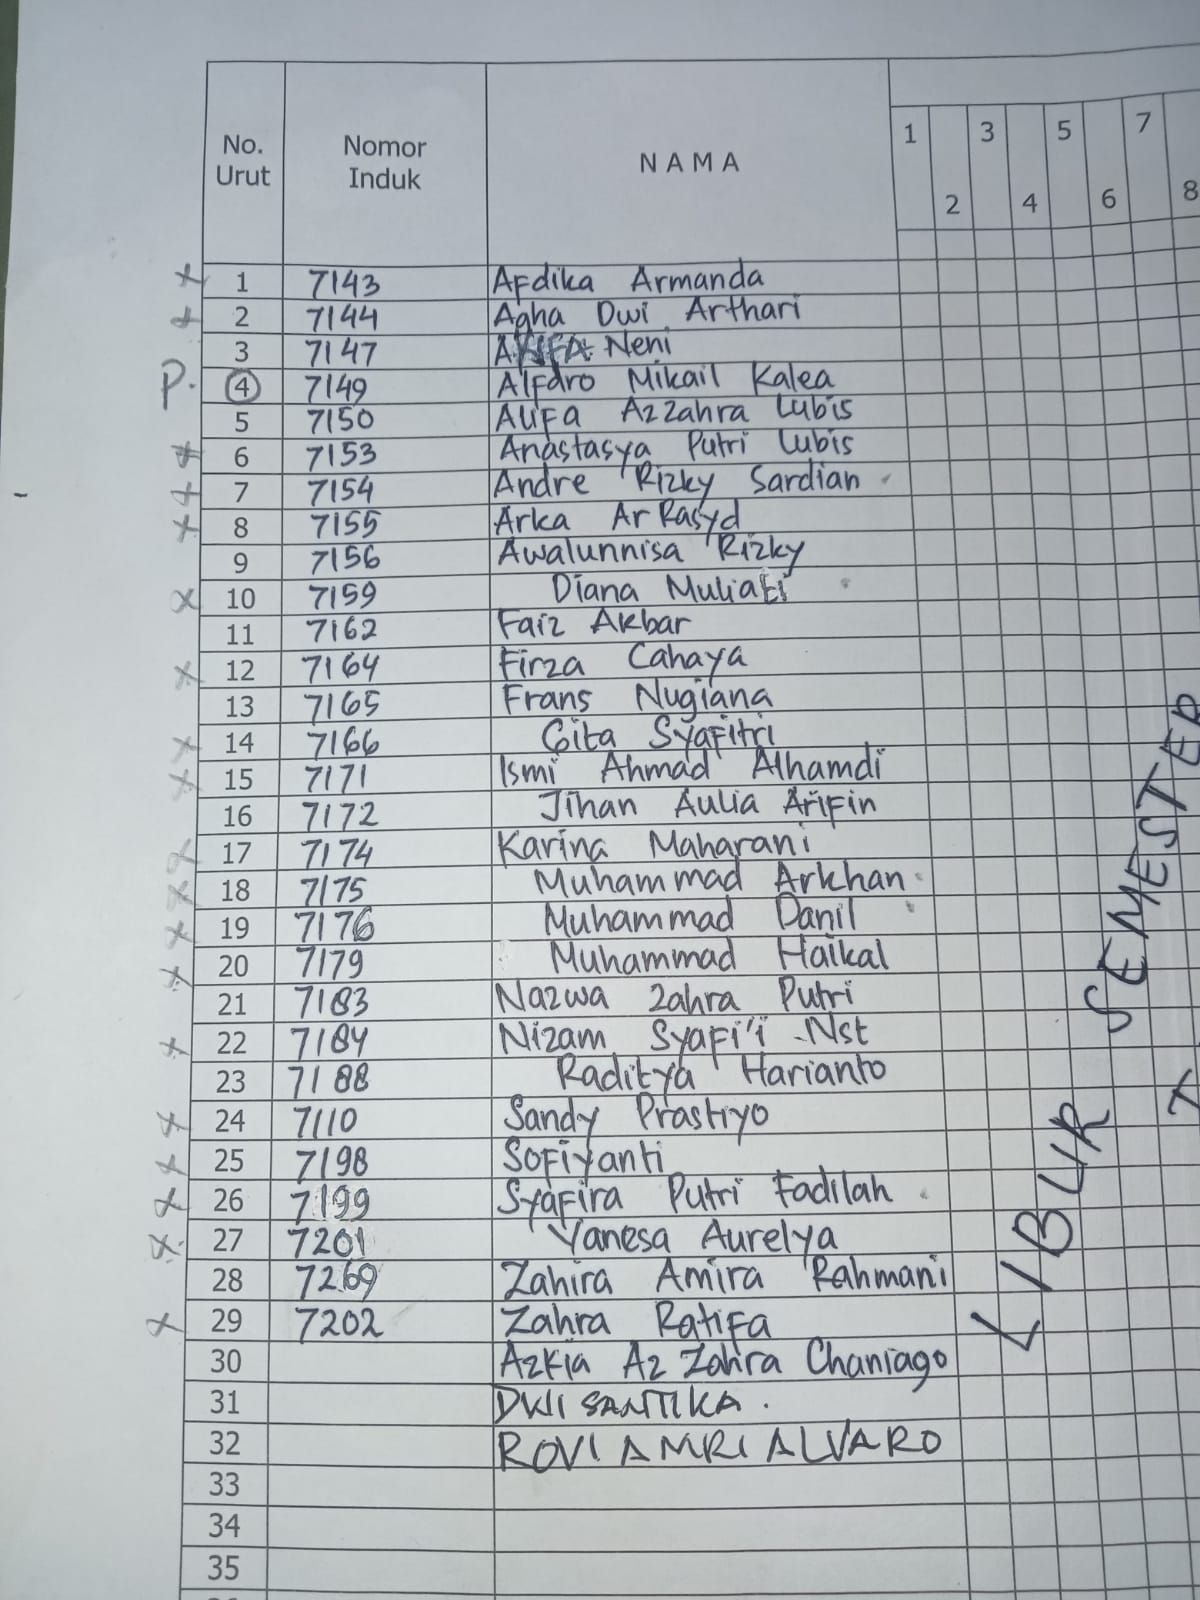 No. Urut Nomor Induk NAMA 1 2 3 4 5 6 7 8
x 1 7143 Afdika Armanda
x 2 7144 Agha Dwi Arthari
3 7147 Neni
P. 4 7149 Alfaro Mikail Kalea
5 7150 Alifa Azzahra Lubis
x 6 7153 Anastasya Putri Lubis
x 7 7154 Andre Rizky Sardian
x 8 7155 Arka Ar Rasyd
9 7156 Awalunnisa Rizky
x 10 7159 Diana Muliati
11 7162 Faiz Akbar
x 12 7164 Firza Cahaya
13 7165 Frans Nugiana
x 14 7166 Gita Syafitri
x 15 7171 Ismi Ahmad Alhamdi
16 7172 Jihan Aulia Arifin
x 17 7174 Karina Maharani
x 18 7175 Muhammad Arkhan
x 19 7176 Muhammad Danil
x 20 7179 Muhammad Haikal
21 7183 Nazwa Zahra Putri
x 22 7184 Nizam Syafi'i Nst
23 7188 Raditya Harianto
x 24 7110 Sandy Prastiyo
x 25 7198 Sofiyanti
x 26 7199 Syafira Putri Fadilah
x 27 7201 Vanesa Aurelya
28 7269 Zahira Amira Rahmani
x 29 7202 Zahra Ratifa
30 Azkia Az Zahra Chaniago
31 DWI SANTIKA.
32 ROVI AMRI ALVARO
33
34
35
LIBUR SEMESTER